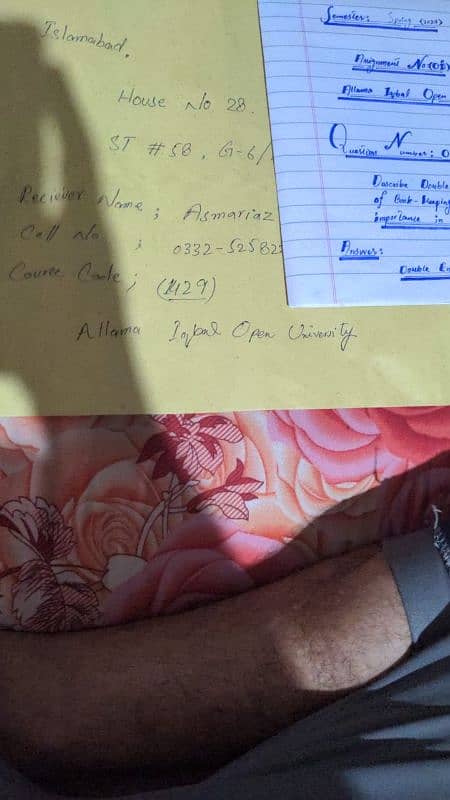 Islamabad.
House No 28.
ST # 5B, G-6/
Reciever Name ; Asmariaz
Call No. ; 0332-52582
Course Code ; (1429)
Allama Iqbal Open University
Semester: Spring (2024)
Assignment No(01)
Allama Iqbal Open
Question Number: 0
Describe Double
of Book-Keeping
importance in
Answer:
Double En